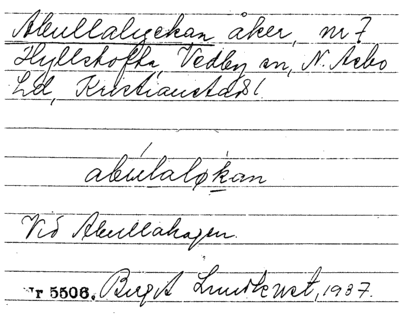 Abullalyckan åker, nr 7
Hyllstofta, Vedby sn, N. Åsbo
hd, Kristianstads l
abúlaløkan
Vid Abullahagen.
Nr 5506. Birgit Lundkvist, 1937.